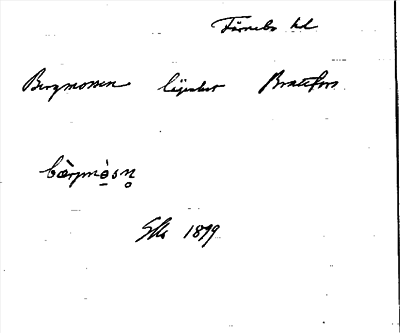 Färnebo hd
Bergmossen lägenhet Bratefors
bærjmòsn̥
SHs 1899